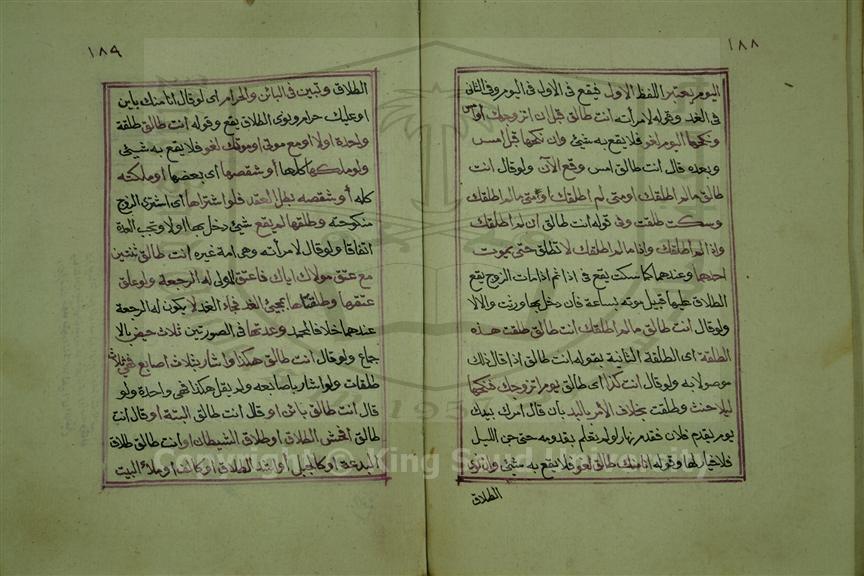 ١٨٨
اليوم يعتبر اللفظ الاول فيقع فى الاول فى اليوم وفى الثانى
فى الغد وقوله لامرأته انت طالق قبل ان اتزوجك او امس
ونكحها اليوم لغو فلا يقع به شيئ وان نكحها قبل امس
وبعده قال انت طالق امس وقع الآن ولو قال انت
طالق مالم اطلقك او متى لم اطلقك او متى مالم اطلقك
وسكت طلقت وفى قوله انت طالق ان لم اطلقك
واذا لم اطلقك واذا مالم اطلقك لا تطلق حتى يموت
احدهما وعندهما كما سكت يقع فى اذا ثم اذا مات الزوج يقع
الطلاق عليها قبيل موته بساعة فان دخل بها ورثت والالا
ولو قال انت طالق مالم اطلقك انت طالق طلقت هذه
الطلقة اى الطلقة الثانية بقوله انت طالق اذا قال ذلك
موصولا به ولو قال انت كذا اى طالق يوم اتزوجك فنكحها
ليلا حنث وطلقت بخلاف الأمر باليد بأن قال امرك بيدك
يوم يقدم فلان فقدم نهارا ولم يعلم بقدومه حتى جن الليل
فلا خيار لها وقوله انا منك طالق لغو فلا يقع به شيئ وان نوى
الطلاق
١٨٩
الطلاق وتبين فى البائن والحرام اى لو قال انا منك باين
او عليك حرام ونوى الطلاق يقع وقوله انت طالق طلقة
واحدة اولا او مع موتى او موتك لغو فلا يقع به شيئ
ولو ملكها كلها أو شقصها اى بعضها او ملكته
كله أو شقصه بطل العقد فلو اشتراها اى اشترى الزوج
منكوحته وطلقها لم يقع شيئ دخل بها اولا وتجب العدة
اتفاقا ولو قال لامرأته وهى امة غيره انت طالق ثنتين
مع عتق مولاك اياك فاعتق المولى له الرجعة ولو علق
عتقها وطلقتاها بمجيئ الغد فجاء الغد لا يكون له الرجعة
عندهما خلافا لمحمد وعدتها فى الصورتين ثلاث حيض بالا
جماع ولو قال انت طالق هكذا واشار بثلاث اصابع فهى ثلاث
طلقات ولو اشار باصابعه ولم يقل هكذا فهى واحدة ولو
قال انت طالق بائن او قال انت طالق البتة او قال انت
طالق افحش الطلاق او طلاق الشيطان او انت طالق طلاق
البدعة او كالجبل او اشد الطلاق او كالف او ملأ البيت
Copyright © King Saud University
1957